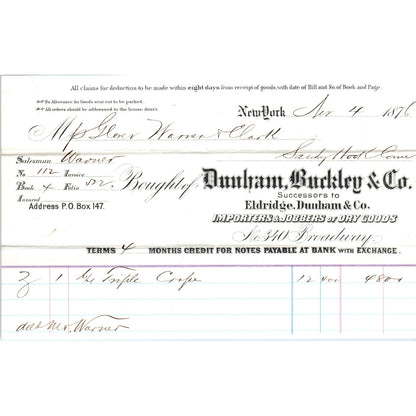 All claims for deduction to be made within eight days from receipt of goods, with date of Bill and No. of Book and Page.
No Allowance for Goods sent out to be packed.
All orders should be addressed to the house direct.
New York 4 1876
Glover Warner & Clark
Sandy Hook Conn
Salesman Warner
No. 112 Invoice
Book 4 Folio 512
Insured
Address P.O. Box 147.
Bought of Dunham, Buckley & Co.
Successors to
Eldridge, Dunham & Co.
IMPORTERS & JOBBERS OF DRY GOODS
No. 340 Broadway.
TERMS 4 MONTHS CREDIT FOR NOTES PAYABLE AT BANK WITH EXCHANGE.
1 Triple Crape 12 400 4800
Mr. Warner